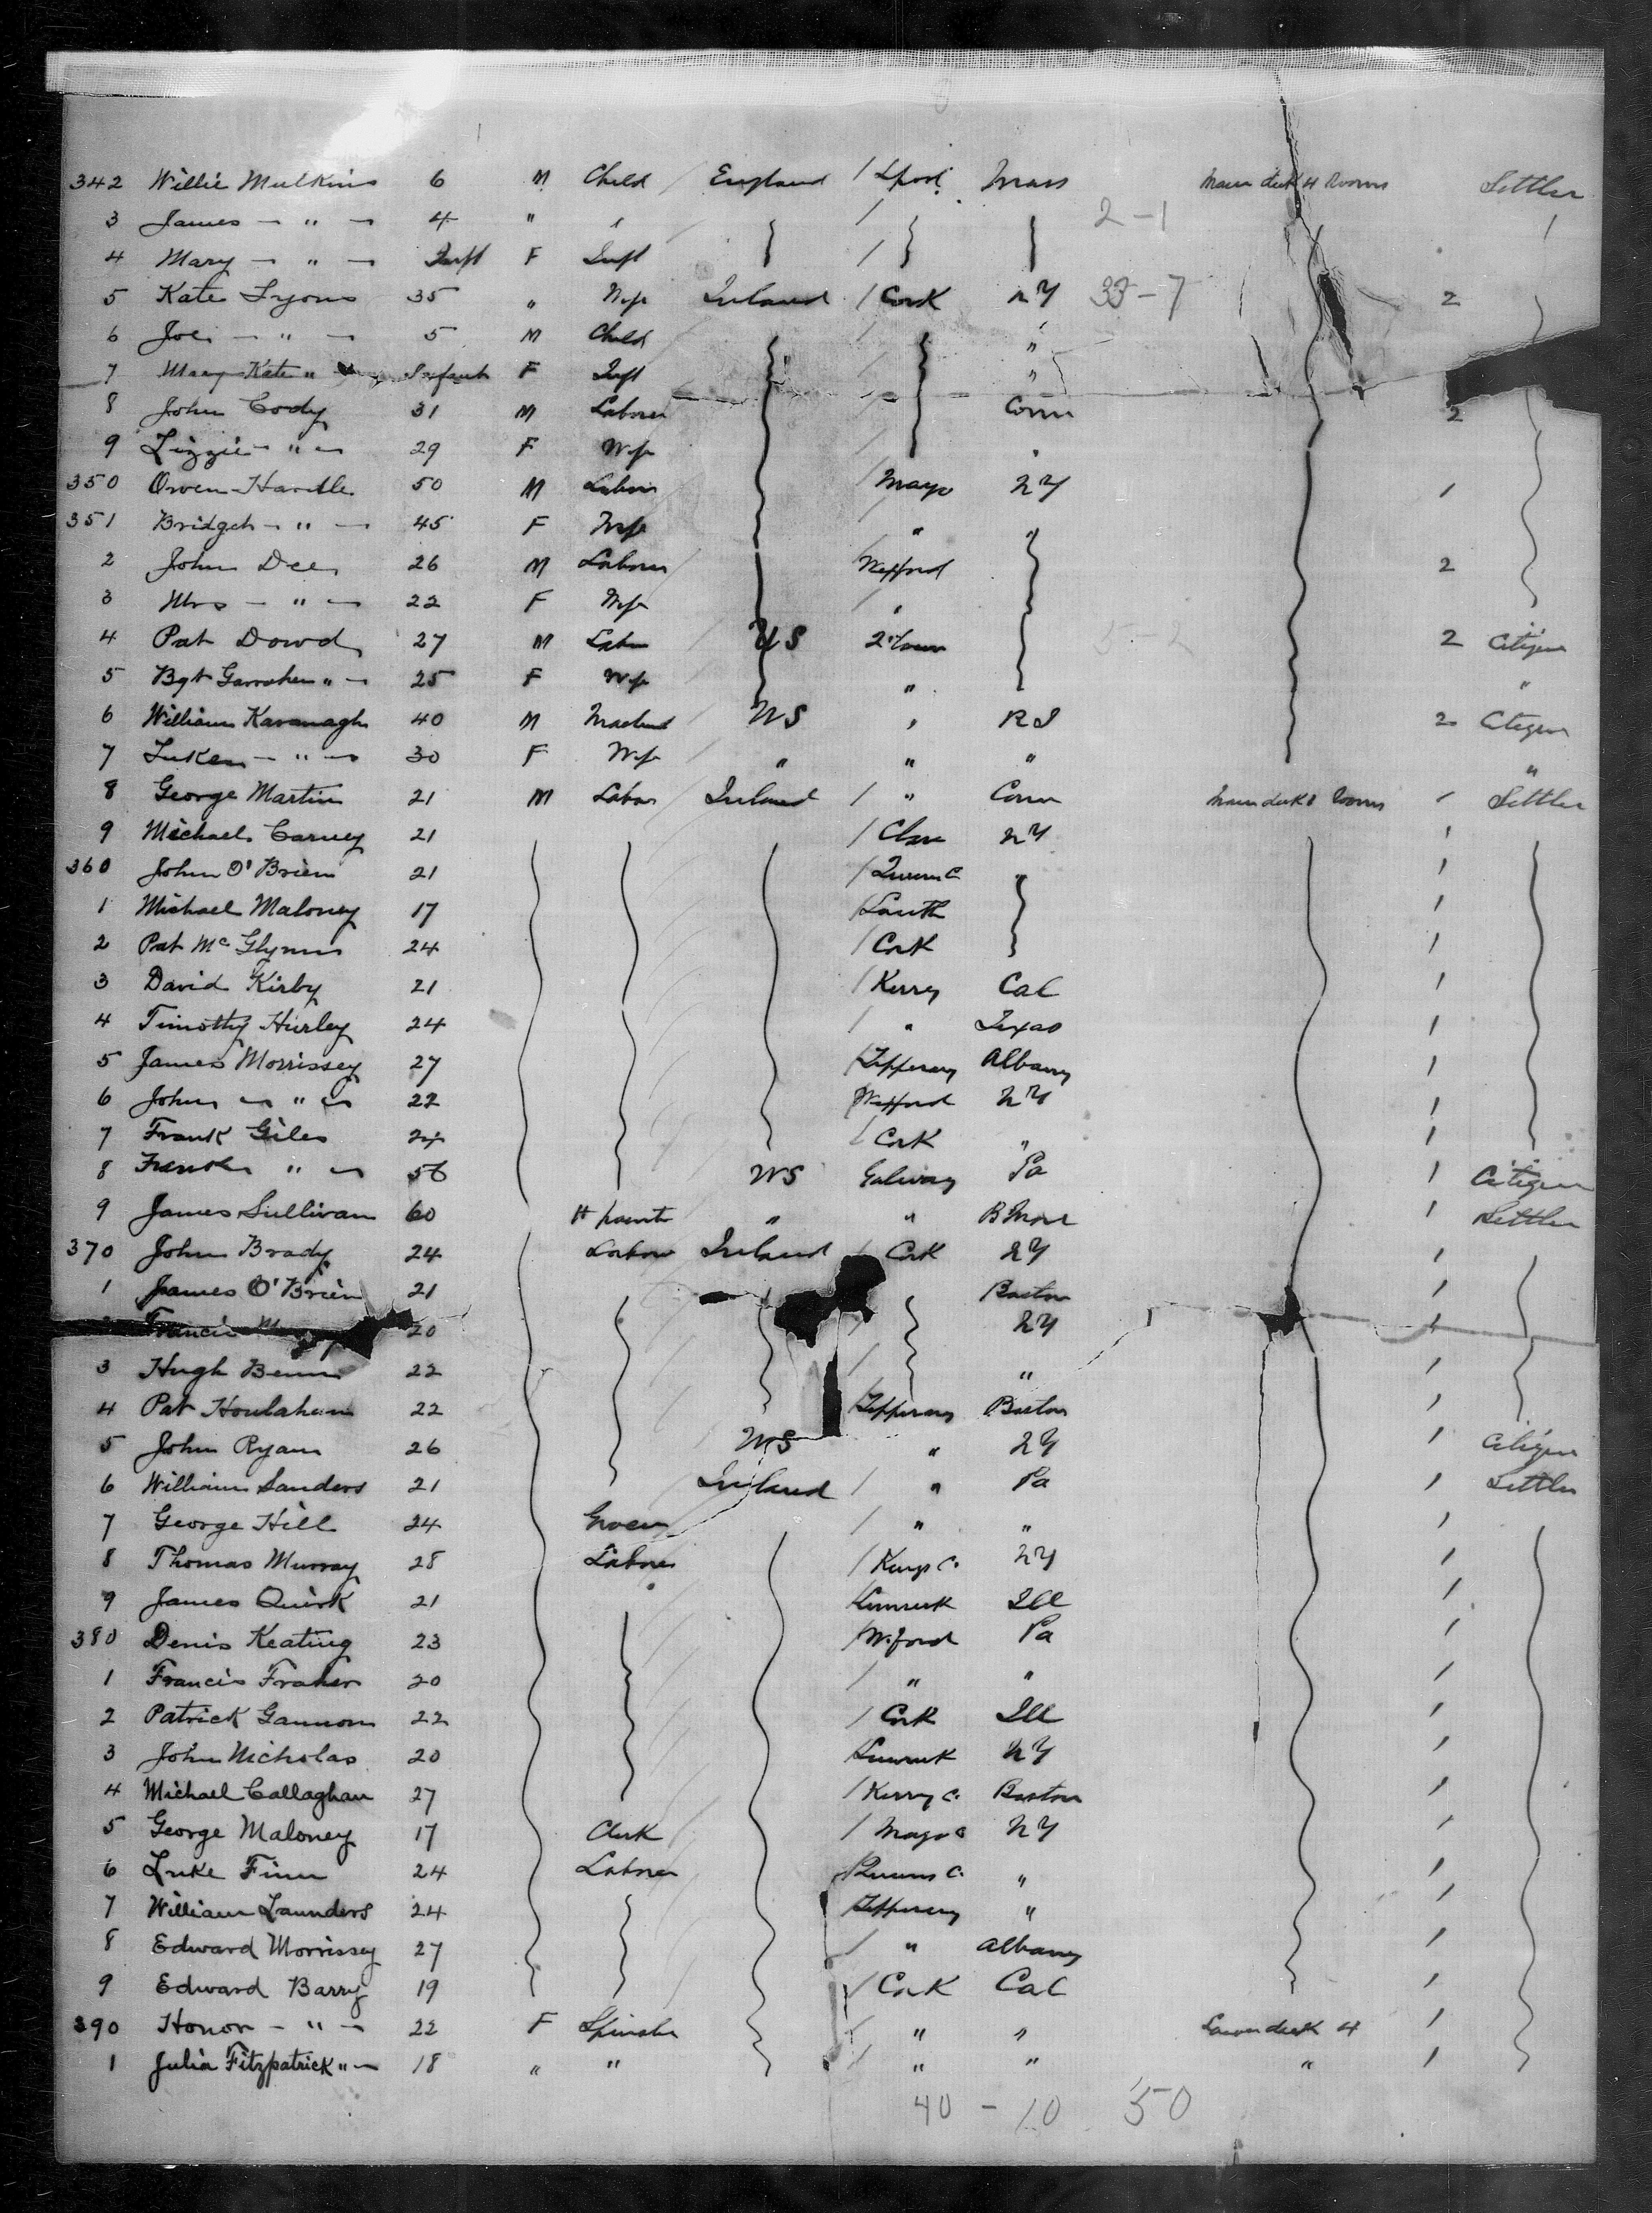 342 Willie Mulkins 6 M Child England / Lpool Mass Main deck 4 Rooms Settler
3 James — " — 4 " " / 2-1 1
4 Mary — " — Inft F Inft /
5 Kate Lyons 35 " Wife Ireland / Cork NY 33-7 2
6 Joe — " — 5 M Child / "
7 Mary Kate " Infant F Inft / "
8 John Cody 31 M Laborer / Conn 2
9 Lizzie — " — 29 F Wife / "
350 Owen 50 M Labor / Mayo NY /
351 Bridget — " — 45 F Wife / "
2 John Dee 26 M Laborer / Wexford 2
3 Mrs — " — 22 F Wife / "
4 Pat Dowd 27 M Labr US 2 Citizen 5-2
5 Bgt " — 25 F Wife " "
6 William Kavanagh 40 M US " R I 2 Citizen
7 — " — 30 F Wife " " " "
8 George Martin 21 M Labor Ireland / " Conn Main deck Rooms / Settler
9 Michael Carney 21 / Clare NY /
360 John O'Brien 21 / Queens C. " /
1 Michael Maloney 17 / Louth /
2 Pat McGlynn 24 / Cork /
3 David Kirby 21 / Kerry Cal /
4 Timothy Hurley 24 / " Texas /
5 James Morrissey 27 / Tipperary Albany /
6 John — " — 22 / Wexford NY /
7 Frank Giles 24 / Cork " /
8 " — 56 US Galway Pa / Citizen
9 James Sullivan 60 " " B More / Settler
370 John Brady 24 Labor Ireland / Cork NY /
1 James O'Brien 21 Boston /
Francis 20 / NY /
3 Hugh 22 / " /
4 Pat Houlahan 22 / Tipperary Boston /
5 John Ryan 26 US " NY / Citizen
6 William Sanders 21 Ireland / " Pa / Settler
7 George Hill 24 Grocer / " " /
8 Thomas Murray 28 Laborer / Kings C. NY /
9 James Quirk 21 Limerick Ill /
380 Denis Keating 23 / W.ford Pa /
1 Francis Fraher 20 / " " /
2 Patrick Gannon 22 / Cork Ill /
3 John Nicholas 20 Limerick NY /
4 Michael Callaghan 27 / Kerry C. Boston /
5 George Maloney 17 Clerk / Mayo C NY /
6 Luke Finn 24 Laborer / Queens C. " /
7 William Saunders 24 / Tipperary " /
8 Edward Morrissey 27 / " Albany /
9 Edward Barry 19 / Cork Cal /
390 Honor — " — 22 F Spinster / " " Lower deck 4 /
1 Julia Fitzpatrick " — 18 " " / " " " /
40 - 10 50